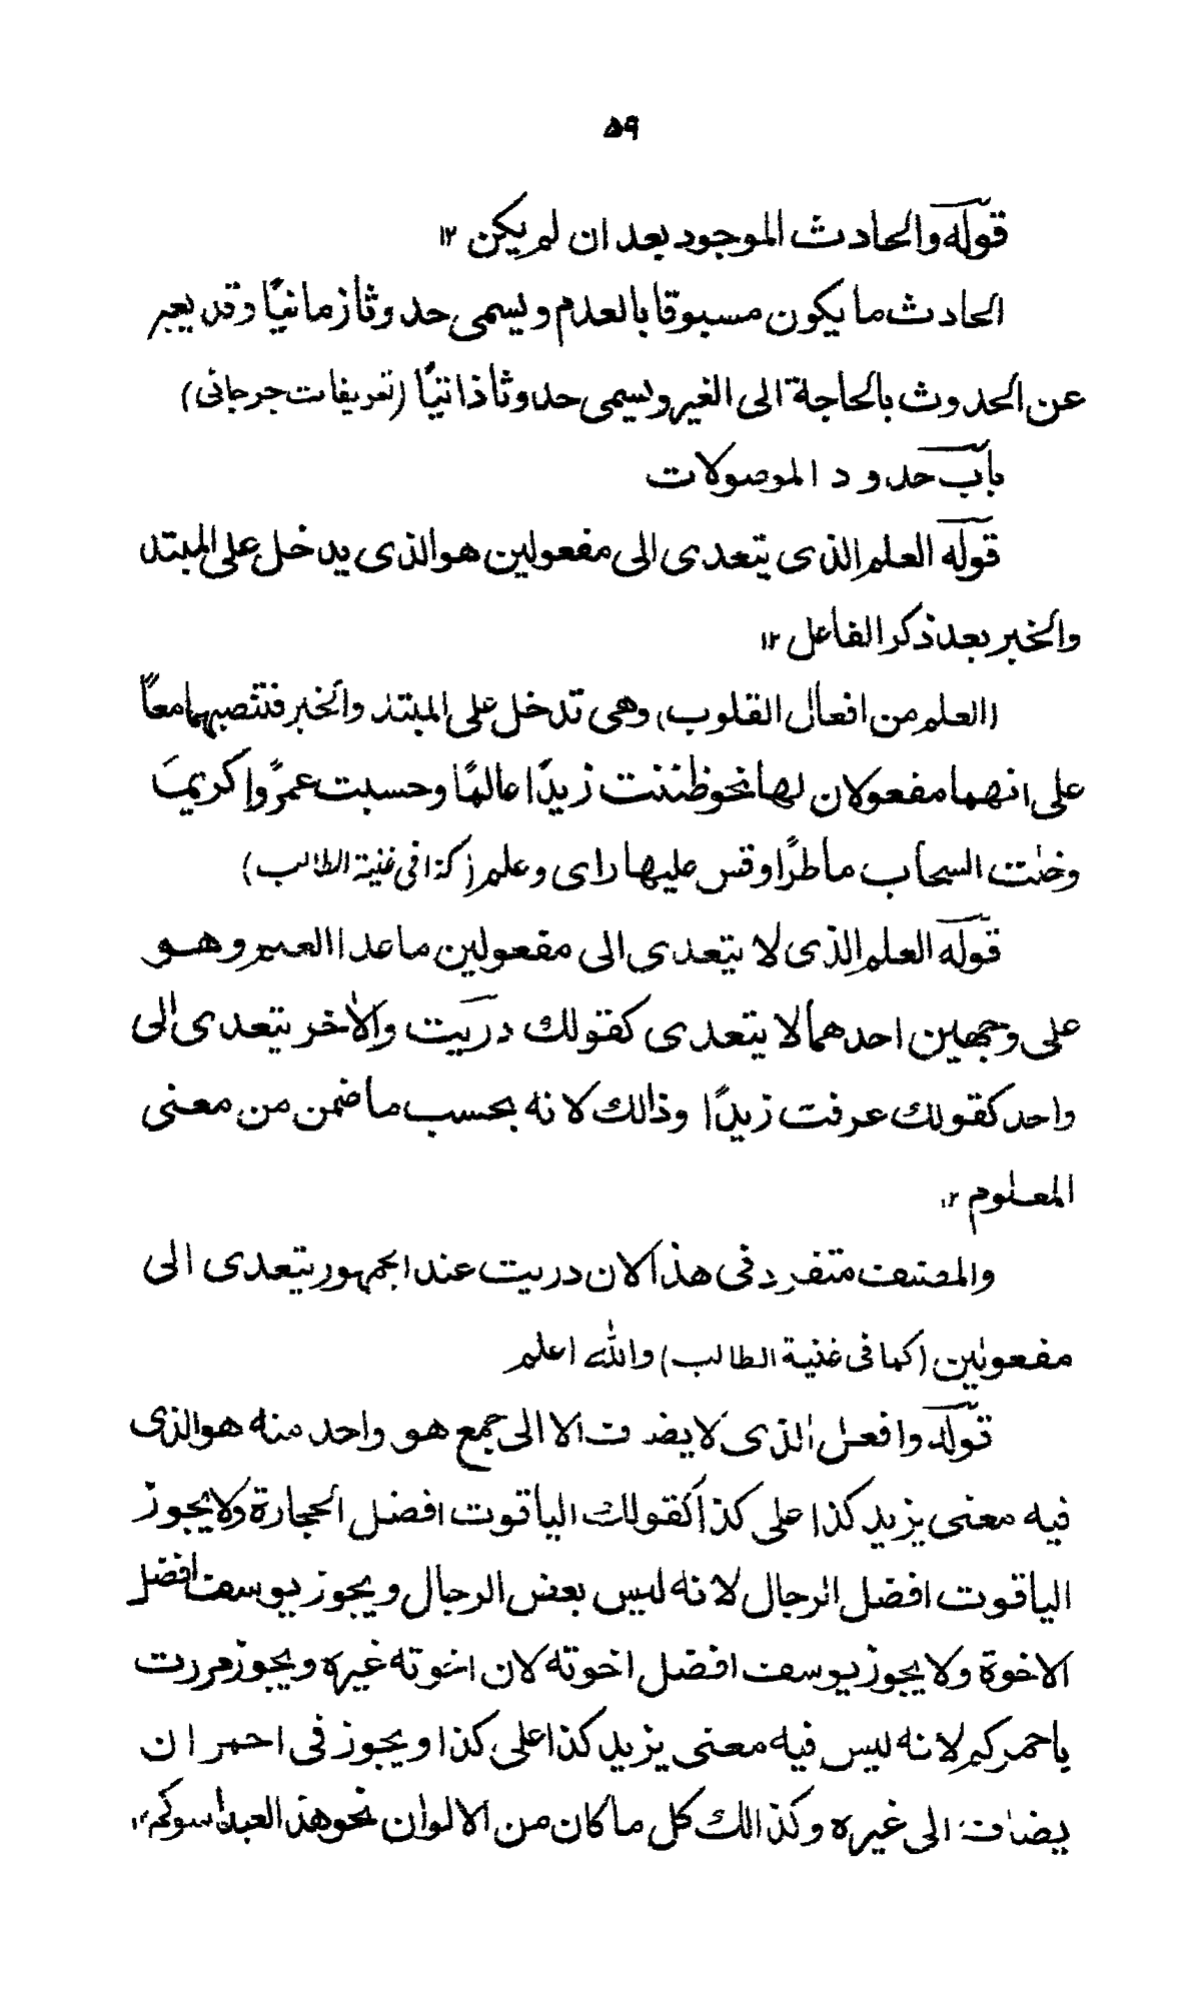 ۵۹
قوله والحادث الموجود بعد ان لم يكن ۱۲
الحادث ما يكون مسبوقا بالعدم ويسمى حدوثا زمانيًا وقد يعبر
عن الحدوث بالحاجة الى الغير ويسمى حدوثا ذاتيًا (تعريفات جرجانى)
باب حدود الموصولات
قوله العلم الذى يتعدى الى مفعولين هو الذى يدخل على المبتد
والخبر بعد ذكر الفاعل ۱۲
(العلم من افعال القلوب) وهى تدخل على المبتد والخبر فتنصبهما معًا
على انهما مفعولان لها نحو ظننت زيدًا عالمًا وحسبت عمرًوا كريما
وخلت السحاب ماطرًا وقس عليها راى وعلم (كذا فى غنية الطالب)
قوله العلم الذى لا يتعدى الى مفعولين ما عدا العبر وهو
على وجهين احدهما لا يتعدى كقولك دريت والاخر يتعدى الى
واحد كقولك عرفت زيدًا وذالك لانه بحسب ما ضمن من معنى
المعلوم ۱۲
والمصنف متفرد فى هذا لان دريت عند الجمهور يتعدى الى
مفعولين (كما فى غنية الطالب) والله اعلم
قوله وافعل الذى لا يضاف الا الى جمع هو واحد منه هو الذى
فيه معنى يزيد كذا على كذا كقولك الياقوت افضل الحجارة ولا يجوز
الياقوت افضل الرجال لانه ليس بعض الرجال ويجوز يوسف افضل
الاخوة ولا يجوز يوسف افضل اخوته لان اخوته غيره ويجوز مررت
باحمركم لانه ليس فيه معنى يزيد كذا على كذا ويجوز فى احمر ان
يضاف الى غيره وكذالك كل ما كان من الالوان نحو هذا العبد اسودكم ۱۲